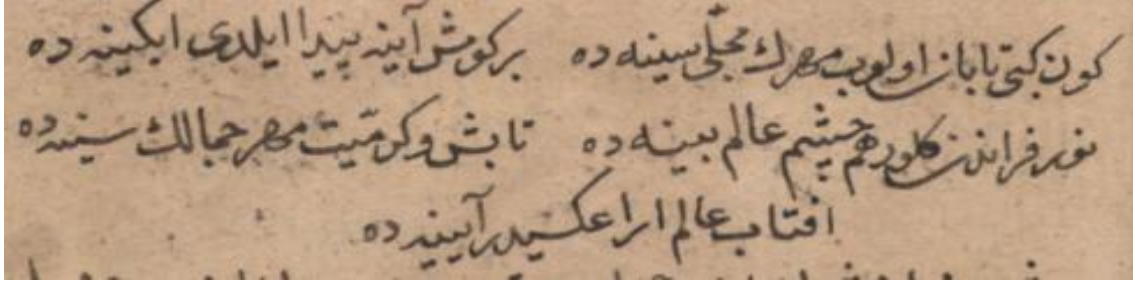 كون كبى تابان اولوب مهرك مجلّى سينه ده بر كومش آينه پيدا ايلدى ايكينه ده
نور فر اندن كلور هم چشم عالم بينه ده تابش و كرميّت مهر جمالك سينه ده
افتاب عالم ارا عكسيدر آيينه ده